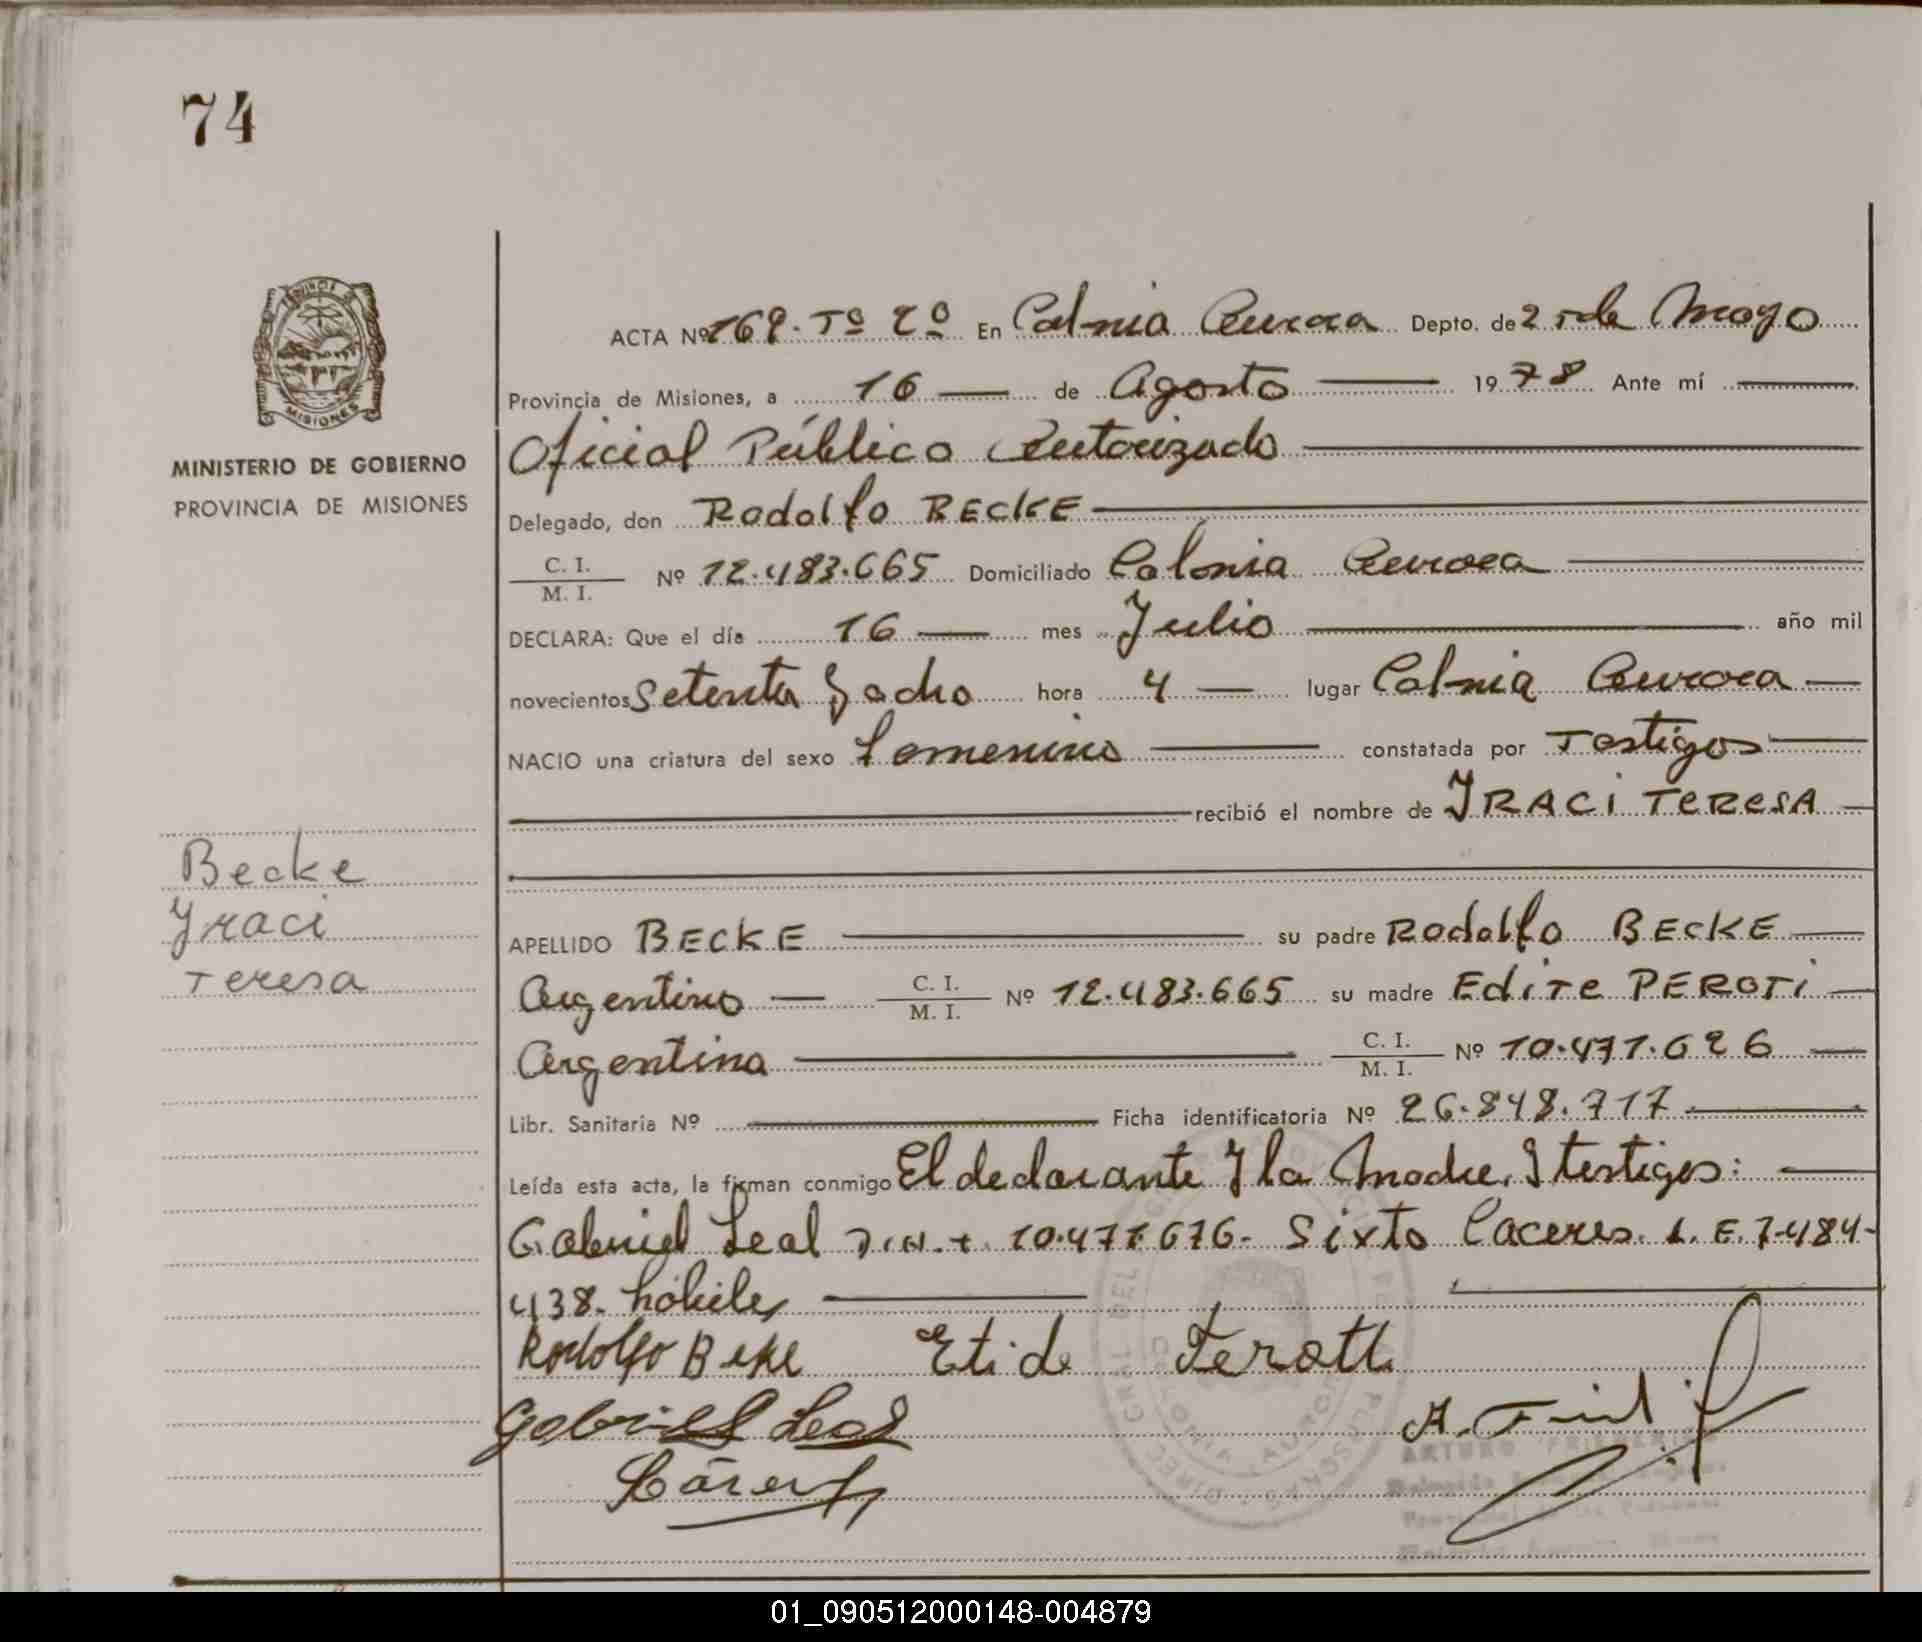 74
PROVINCIA DE
MISIONES
MINISTERIO DE GOBIERNO
PROVINCIA DE MISIONES
ACTA Nº 169. Tº 2º En Colonia Aurora Depto. de 25 de Mayo
Provincia de Misiones, a 16 de Agosto 1978 Ante mí
Oficial Público Autorizado
Delegado, don Rodolfo BECKE
C. I.
M. I. Nº 12.483.665 Domiciliado Colonia Aurora
DECLARA: Que el día 16 mes Julio año mil
novecientos Setenta y ocho hora 4 lugar Colonia Aurora
NACIO una criatura del sexo femenino constatada por Testigos
recibió el nombre de YRACI TERESA
Becke
Yraci
Teresa
APELLIDO BECKE su padre Rodolfo BECKE
Argentino C. I. M. I. Nº 12.483.665 su madre Edite PEROTI
Argentina C. I. M. I. Nº 10.471.626
Libr. Sanitaria Nº Ficha identificatoria Nº 26.848.717
Leída esta acta, la firman conmigo El declarante y la Madre, y testigos:
Gabriel Leal D.N.I. 10.477.676. Sixto Caceres. L.E. 7.484.
438. hábiles
Rodolfo Beke Etide Ferotti
Gabriel Leal
ARTURO
01_090512000148-004879